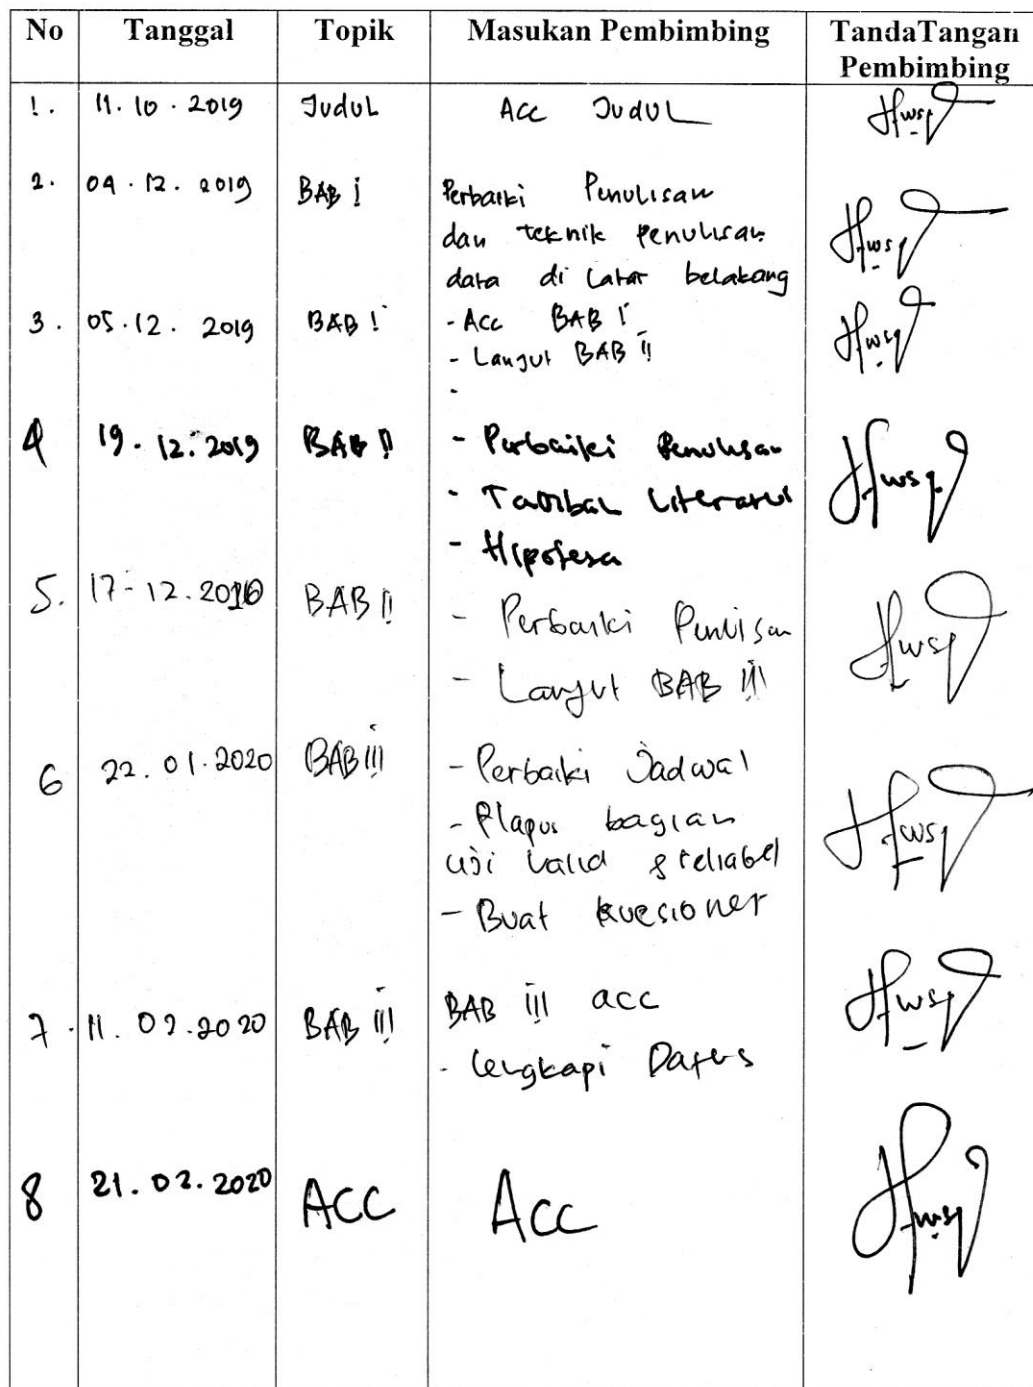 No Tanggal Topik Masukan Pembimbing TandaTangan
Pembimbing
1. 11.10.2019 Judul Acc Judul
2. 04.12.2019 BAB I Perbaiki Penulisan
dan teknik penulisan
data di Latar belakang
3. 05.12.2019 BAB I - Acc BAB I
- Lanjut BAB II
-
4 19.12.2019 BAB II - Perbaiki Penulisan
- Tambah Literatur
- Hipotesa
5. 17-12.20 BAB II - Perbaiki Penulisan
- Lanjut BAB III
6 22.01.2020 BAB III - Perbaiki Jadwal
- bagian
Uji Valid & reliabel
- Buat kuesioner
7. 11.02.2020 BAB III BAB III acc
- Lengkapi
8 21.02.2020 ACC Acc